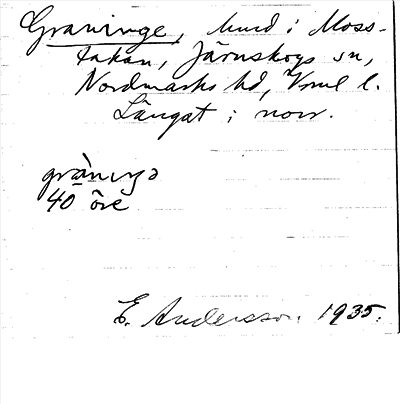 Graninge, hmd i Moss-
takan, Järnskogs sn,
Nordmarks hd, Vrml l.
Långat i norr.
gràniŋə
40 öre
E. Andersson. 1935.